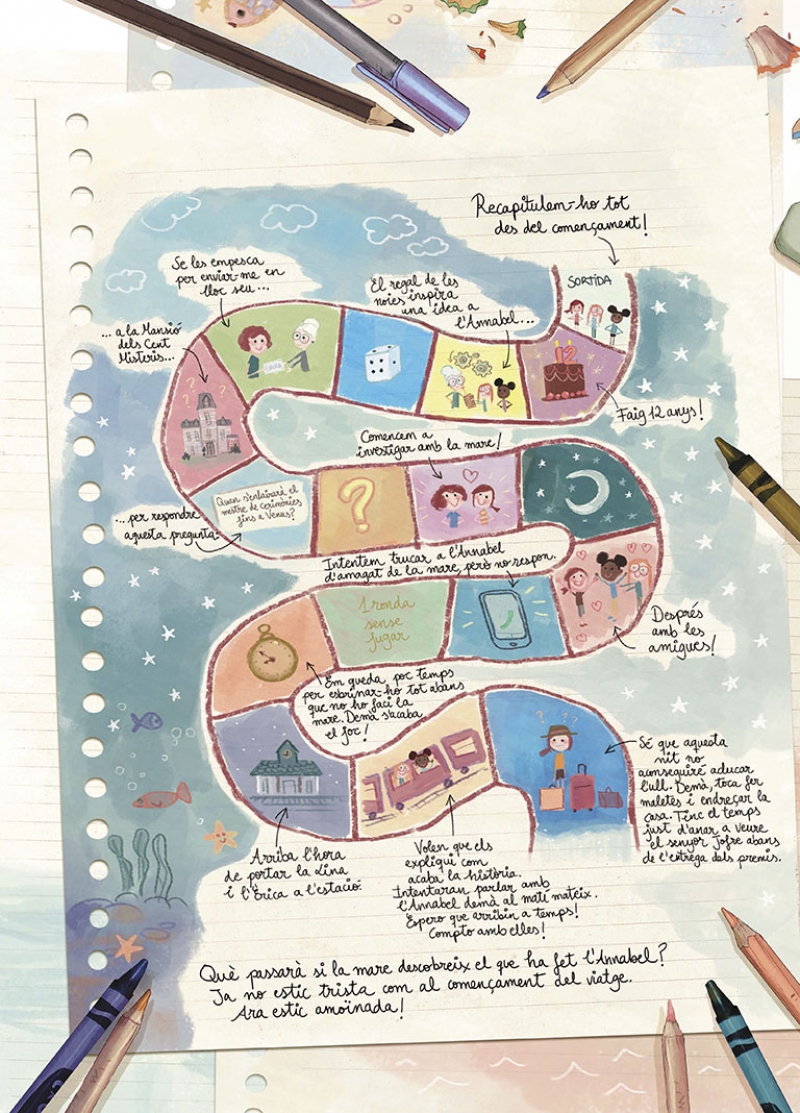 Recapitulem-ho tot
des del començament!
SORTIDA
Faig 12 anys!
12
El regal de les
noies inspira
una idea a
l'Annabel...
Se les empesca
per enviar-me en
lloc seu...
... a la Mansió
dels Cent
Misteris...
... per respondre
aquesta pregunta.
Quan s'enlairarà el
mestre de cerimònies
fins a Venus?
Comencem a
investigar amb la mare!
Després
amb les
amigues!
Intentem trucar a l'Annabel
d'amagat de la mare, però no respon.
1 ronda
sense
jugar
Em queda poc temps
per esbrinar-ho tot abans
que no ho faci la
mare. Demà s'acaba
el joc!
Arriba l'hora
de portar la Lina
i l'Erica a l'estació.
Volen que els
expliqui com
acaba la història.
Intentaran parlar amb
l'Annabel demà al matí mateix.
Espero que arribin a temps!
Compto amb elles!
Sé que aquesta
nit no
aconseguiré aclucar
l'ull. Demà, toca fer
maletes i endreçar la
casa. Tinc el temps
just d'anar a veure
el senyor Jofre abans
de l'entrega dels premis.
Què passarà si la mare descobreix el que ha fet l'Annabel?
Ja no estic trista com al començament del viatge.
Ara estic amoïnada!